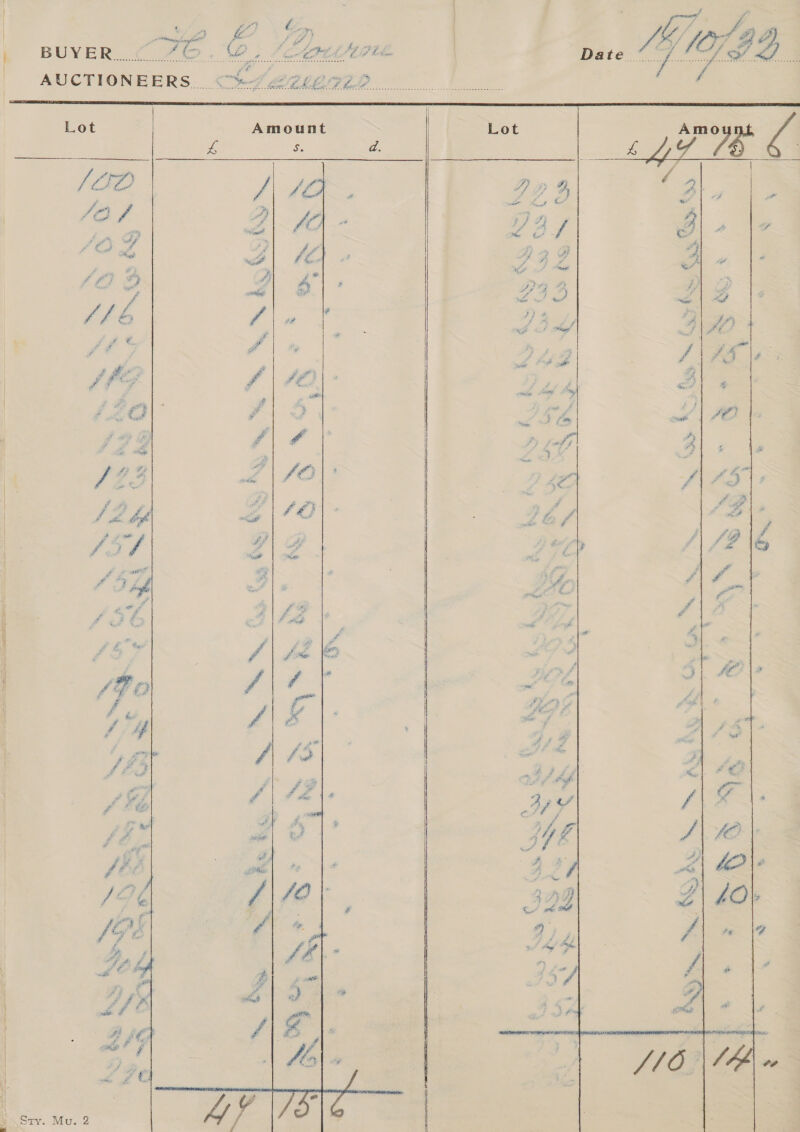 BUYER H. C. Bourne Date 18/10/32
AUCTIONEERS Stevens
Lot Amount Lot Amount
£ s. d. £ s.
47 15 6
100 1 10 .
101 2 10 .
102 2 10 .
103 2 5 .
116 1 " .
117 1 " .
119 1 10 .
120 1 5 .
122 1 1 .
123 2 10 .
124 2 10 .
151 2 2 .
154 3 . .
156 3 12 .
157 1 12 6
170 1 1 "
174 1 8 .
185 1 15
186 1 12 .
187 2 5 .
188 2 " .
196 1 10 .
198 1 " .
204 18 .
218 2 5 "
219 1 8 .
220 16 "
47 15 6
223 3 " "
231 3 " "
232 3 " "
233 2 2 .
234 3 10 .
242 1 15 .
244 3 .
256 2 10 .
258 3 . .
260 1 15 .
261 12 .
270 1 12 6
290 1 1 .
294 1 8 .
295 5 . .
296 5 10 .
298 4 . .
312 2 15 .
314 2 10
317 1 8 .
318 1 10 .
321 2 10 .
322 2 10 .
344 1 " "
351 1 . "
354 2 " "
110 14 "
STY. MU. 2